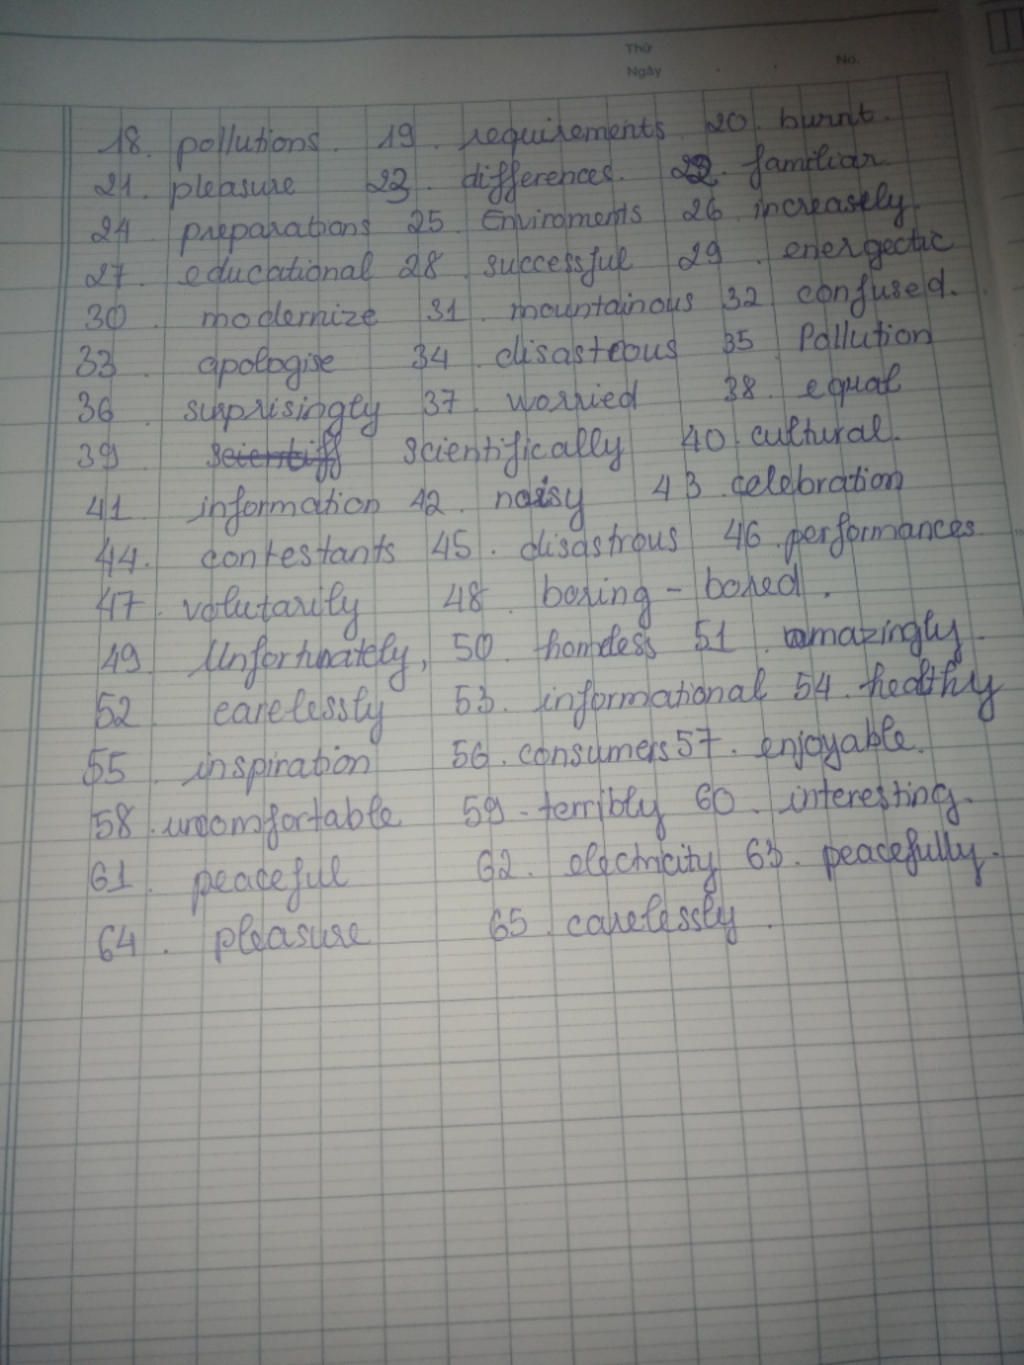 Thứ
Ngày No.
18. pollutions. 19. requirements 20. burnt.
21. pleasure 23. differences. 22. familiar
24 preparations 25. Enviroments 26 increasely.
27. educational 28. successful 29. energectic
30. modernize 31. mountainous 32 confused.
33. apologise 34. disasteous 35 Pollution
36. surprisingly 37. worried 38. equal
39 scientiff scientifically 40. cultural.
41. information 42. noisy 43. celebration
44. contestants 45. disastrous 46. performances
47. volutarily 48. boring - bored.
49 Unfortunately, 50. homeless 51. amazingly.
52 carelessly 53. informational 54. healthy
55. inspiration 56. consumers 57. enjoyable.
58. uncomfortable 59. terribly 60. interesting.
61. peaceful 62. electricity 63. peacefully.
64. pleasure 65. carelessly.